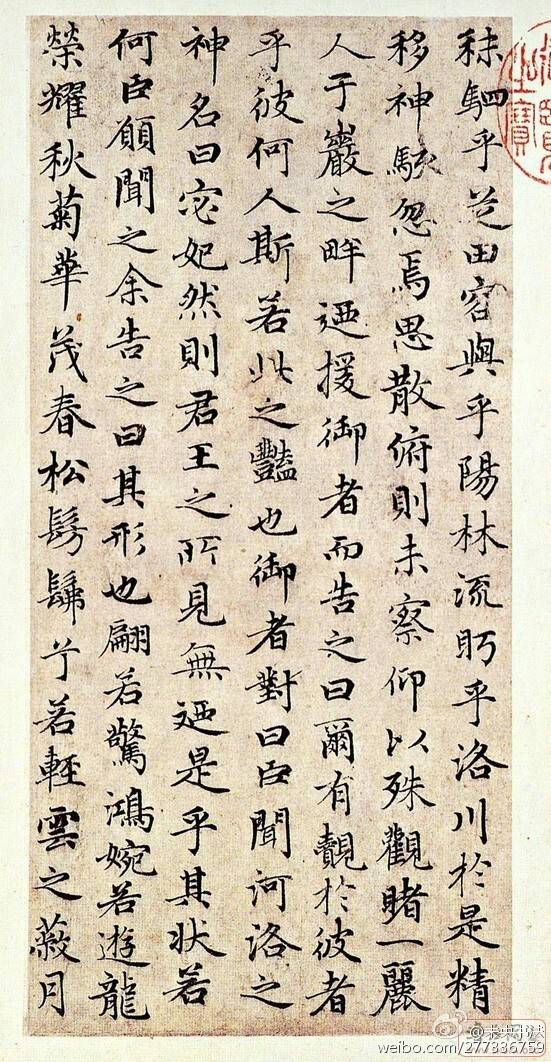 秣駟乎芝田容與乎陽林流眄乎洛川於是精
移神駭忽焉思散俯則未察仰以殊觀睹一麗
人于巖之畔迺援御者而告之曰爾有觀於彼者
乎彼何人斯若此之豔也御者對曰臣聞河洛之
神名曰宓妃然則君王之所見無迺是乎其狀若
何臣願聞之余告之曰其形也翩若驚鴻婉若遊龍
榮耀秋菊華茂春松髣髴兮若輕雲之蔽月
之寶
weibo.com/277836759